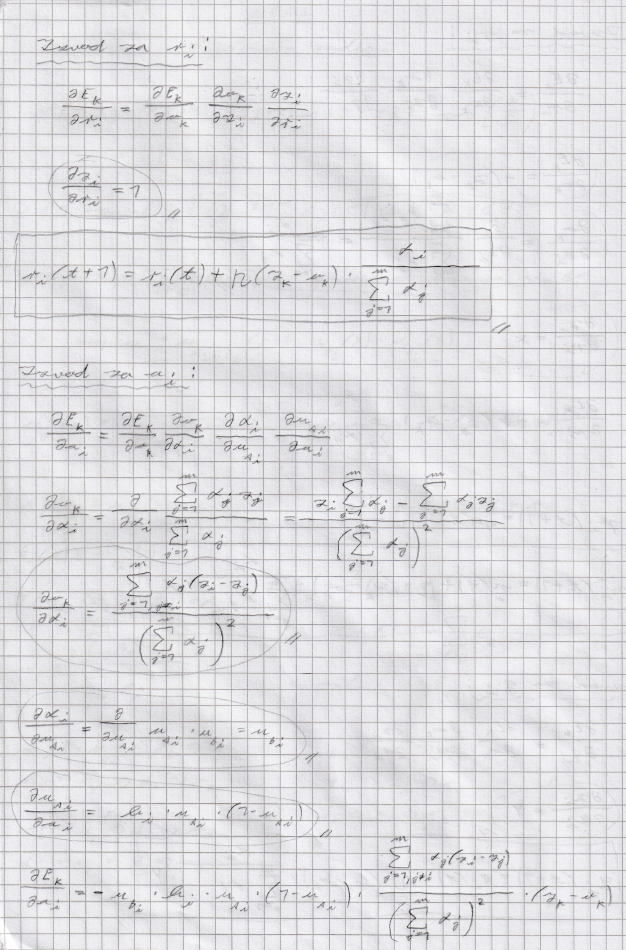 Izvod za r_i:
∂E_k/∂r_i = ∂E_k/∂o_k ∂o_k/∂z_i ∂z_i/∂r_i
∂z_i/∂r_i = 1 //
r_i(t+1) = r_i(t) + η(y_k - o_k) · α_i / ∑_{j=1}^{m} α_j //
Izvod za a_i:
∂E_k/∂a_i = ∂E_k/∂o_k ∂o_k/∂α_i ∂α_i/∂μ_{A_i} ∂μ_{A_i}/∂a_i
∂o_k/∂α_i = ∂/∂α_i (∑_{j=1}^{m} α_j z_j / ∑_{j=1}^{m} α_j) = (z_i ∑_{j=1}^{m} α_j - ∑_{j=1}^{m} α_j z_j) / (∑_{j=1}^{m} α_j)^2
∂o_k/∂α_i = ∑_{j=1, j≠i}^{m} α_j(z_i - z_j) / (∑_{j=1}^{m} α_j)^2 //
∂α_i/∂μ_{A_i} = ∂/∂μ_{A_i} μ_{A_i} · μ_{B_i} = μ_{B_i} //
∂μ_{A_i}/∂a_i = b_i · μ_{A_i} · (1 - μ_{A_i}) //
∂E_k/∂a_i = - μ_{B_i} · b_i · μ_{A_i} · (1 - μ_{A_i}) · ∑_{j=1, j≠i}^{m} α_j(z_i - z_j) / (∑_{j=1}^{m} α_j)^2 · (y_k - o_k)